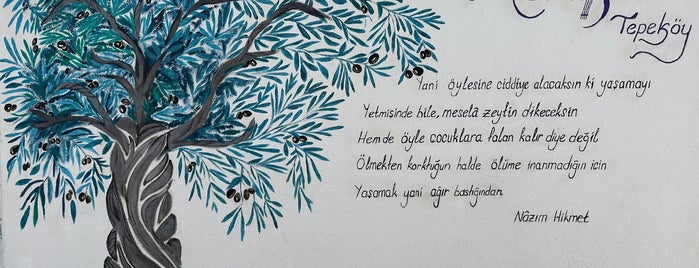 Tepeköy
Yani öylesine ciddiye alacaksın ki yaşamayı
Yetmişinde bile, meselâ zeytin dikeceksin
Hem de öyle çocuklara falan kalır diye değil
Ölmekten korktuğun halde ölüme inanmadığın için
Yaşamak yani ağır bastığından.
Nâzım Hikmet